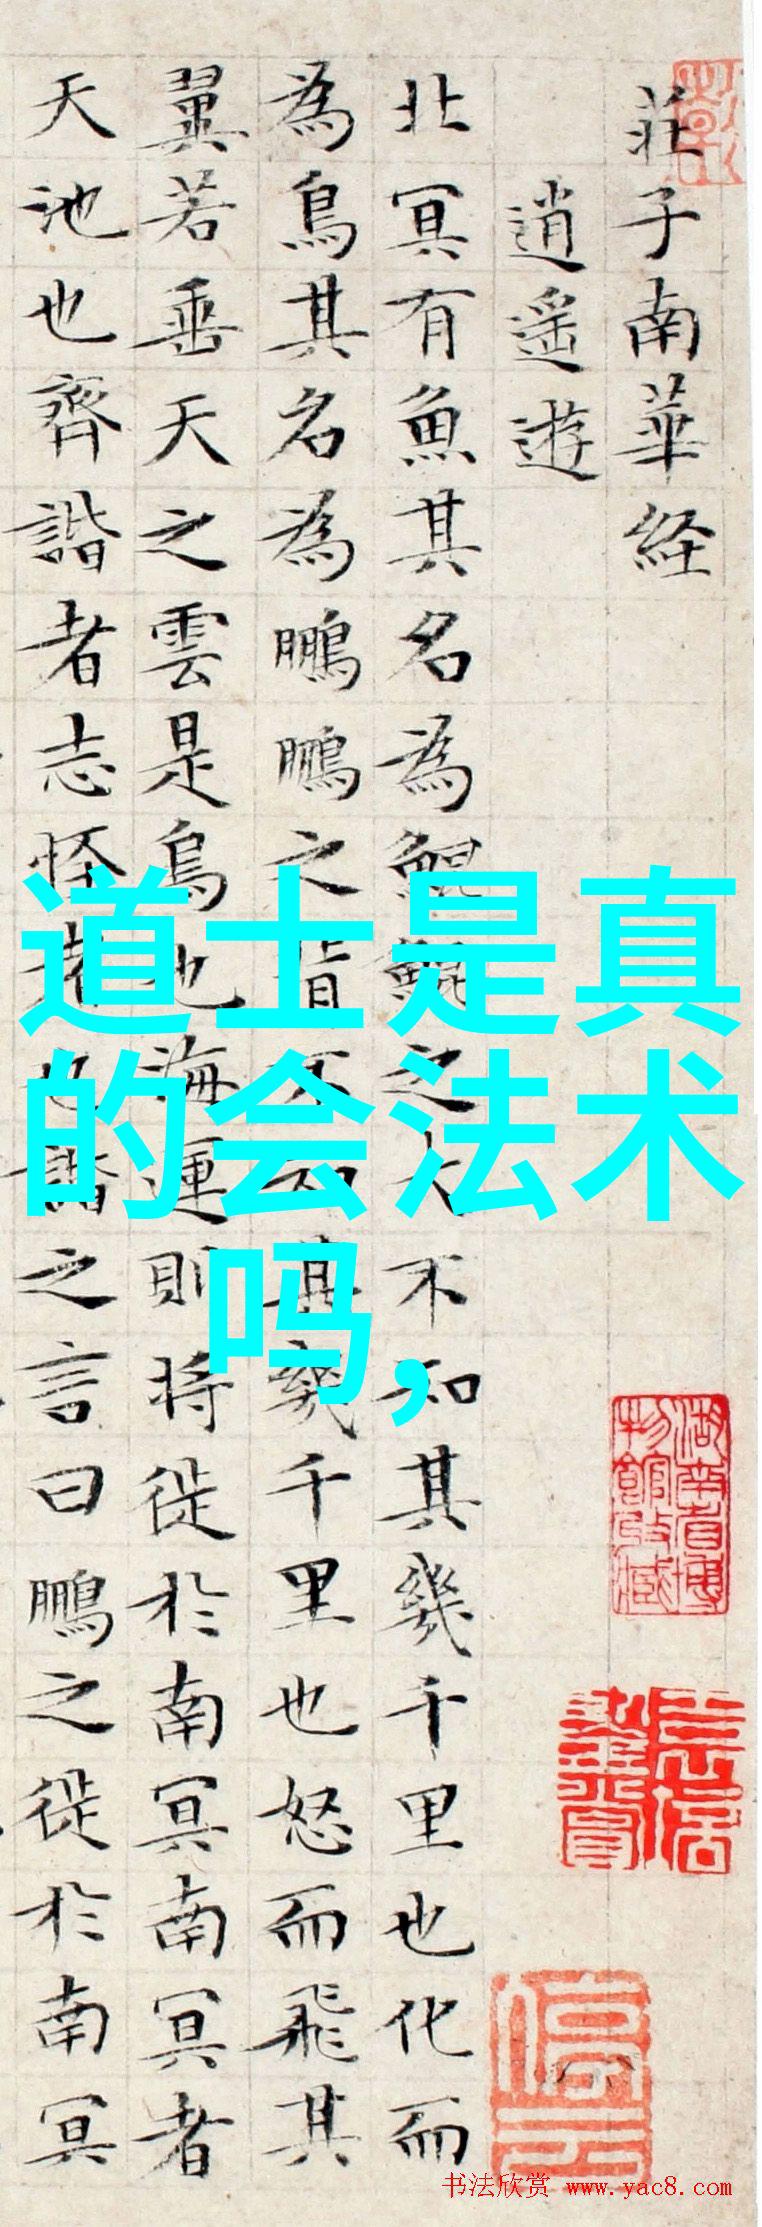 莊子南華経
逍遥遊
北冥有魚其名為鯤鯤之大不知其幾千里也化而
為鳥其名為鵬鵬之背不知其幾千里也怒而飛其
翼若垂天之雲是鳥也海運則將徙於南冥南冥者
天池也齊諧者志怪者也諧之言曰鵬之徙於南冥
道士是真
的会法术
吗,
湖南省博
物館收藏
书法欣赏 www.yac8.com